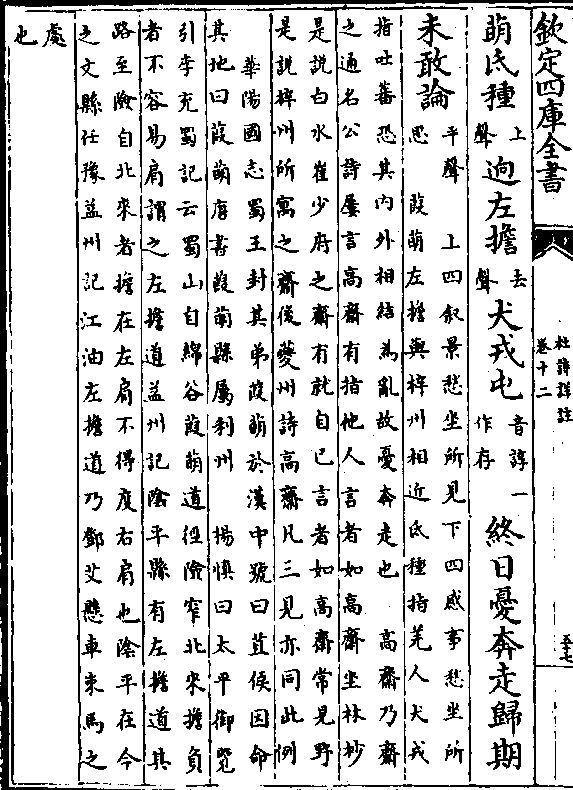 欽定四庫全書
杜詩詳註
卷十二
五十七
萌氐種上聲逈左擔去聲犬戎屯音諄一作存終日憂奔走歸期
未敢論平聲 上四叙景愁坐所見下四感事愁坐所
思 葭萌左擔與梓州相近氐種指羌人犬戎
指吐蕃恐其内外相結為亂故憂奔走也 高齋乃齋
之通名公詩屢言高齋有指他人言者如高齋坐林杪
是説白水崔少府之齋有就自己言者如高齋常見野
是説梓州所寓之齋後夔州詩高齋凡三見亦同此例
華陽國志蜀王封其弟葭萌於漢中號曰苴侯因命
其地曰葭萌唐書葭萌縣屬利州 楊慎曰太平御覽
引李充蜀記云蜀山自綿谷葭萌道徑險窄北來擔負
者不容易肩謂之左擔道益州記陰平縣有左擔道其
路至險自北來者擔在左肩不得度右肩也陰平在今
之文縣任豫益州記江油左擔道乃鄧艾懸車束馬之
處
也